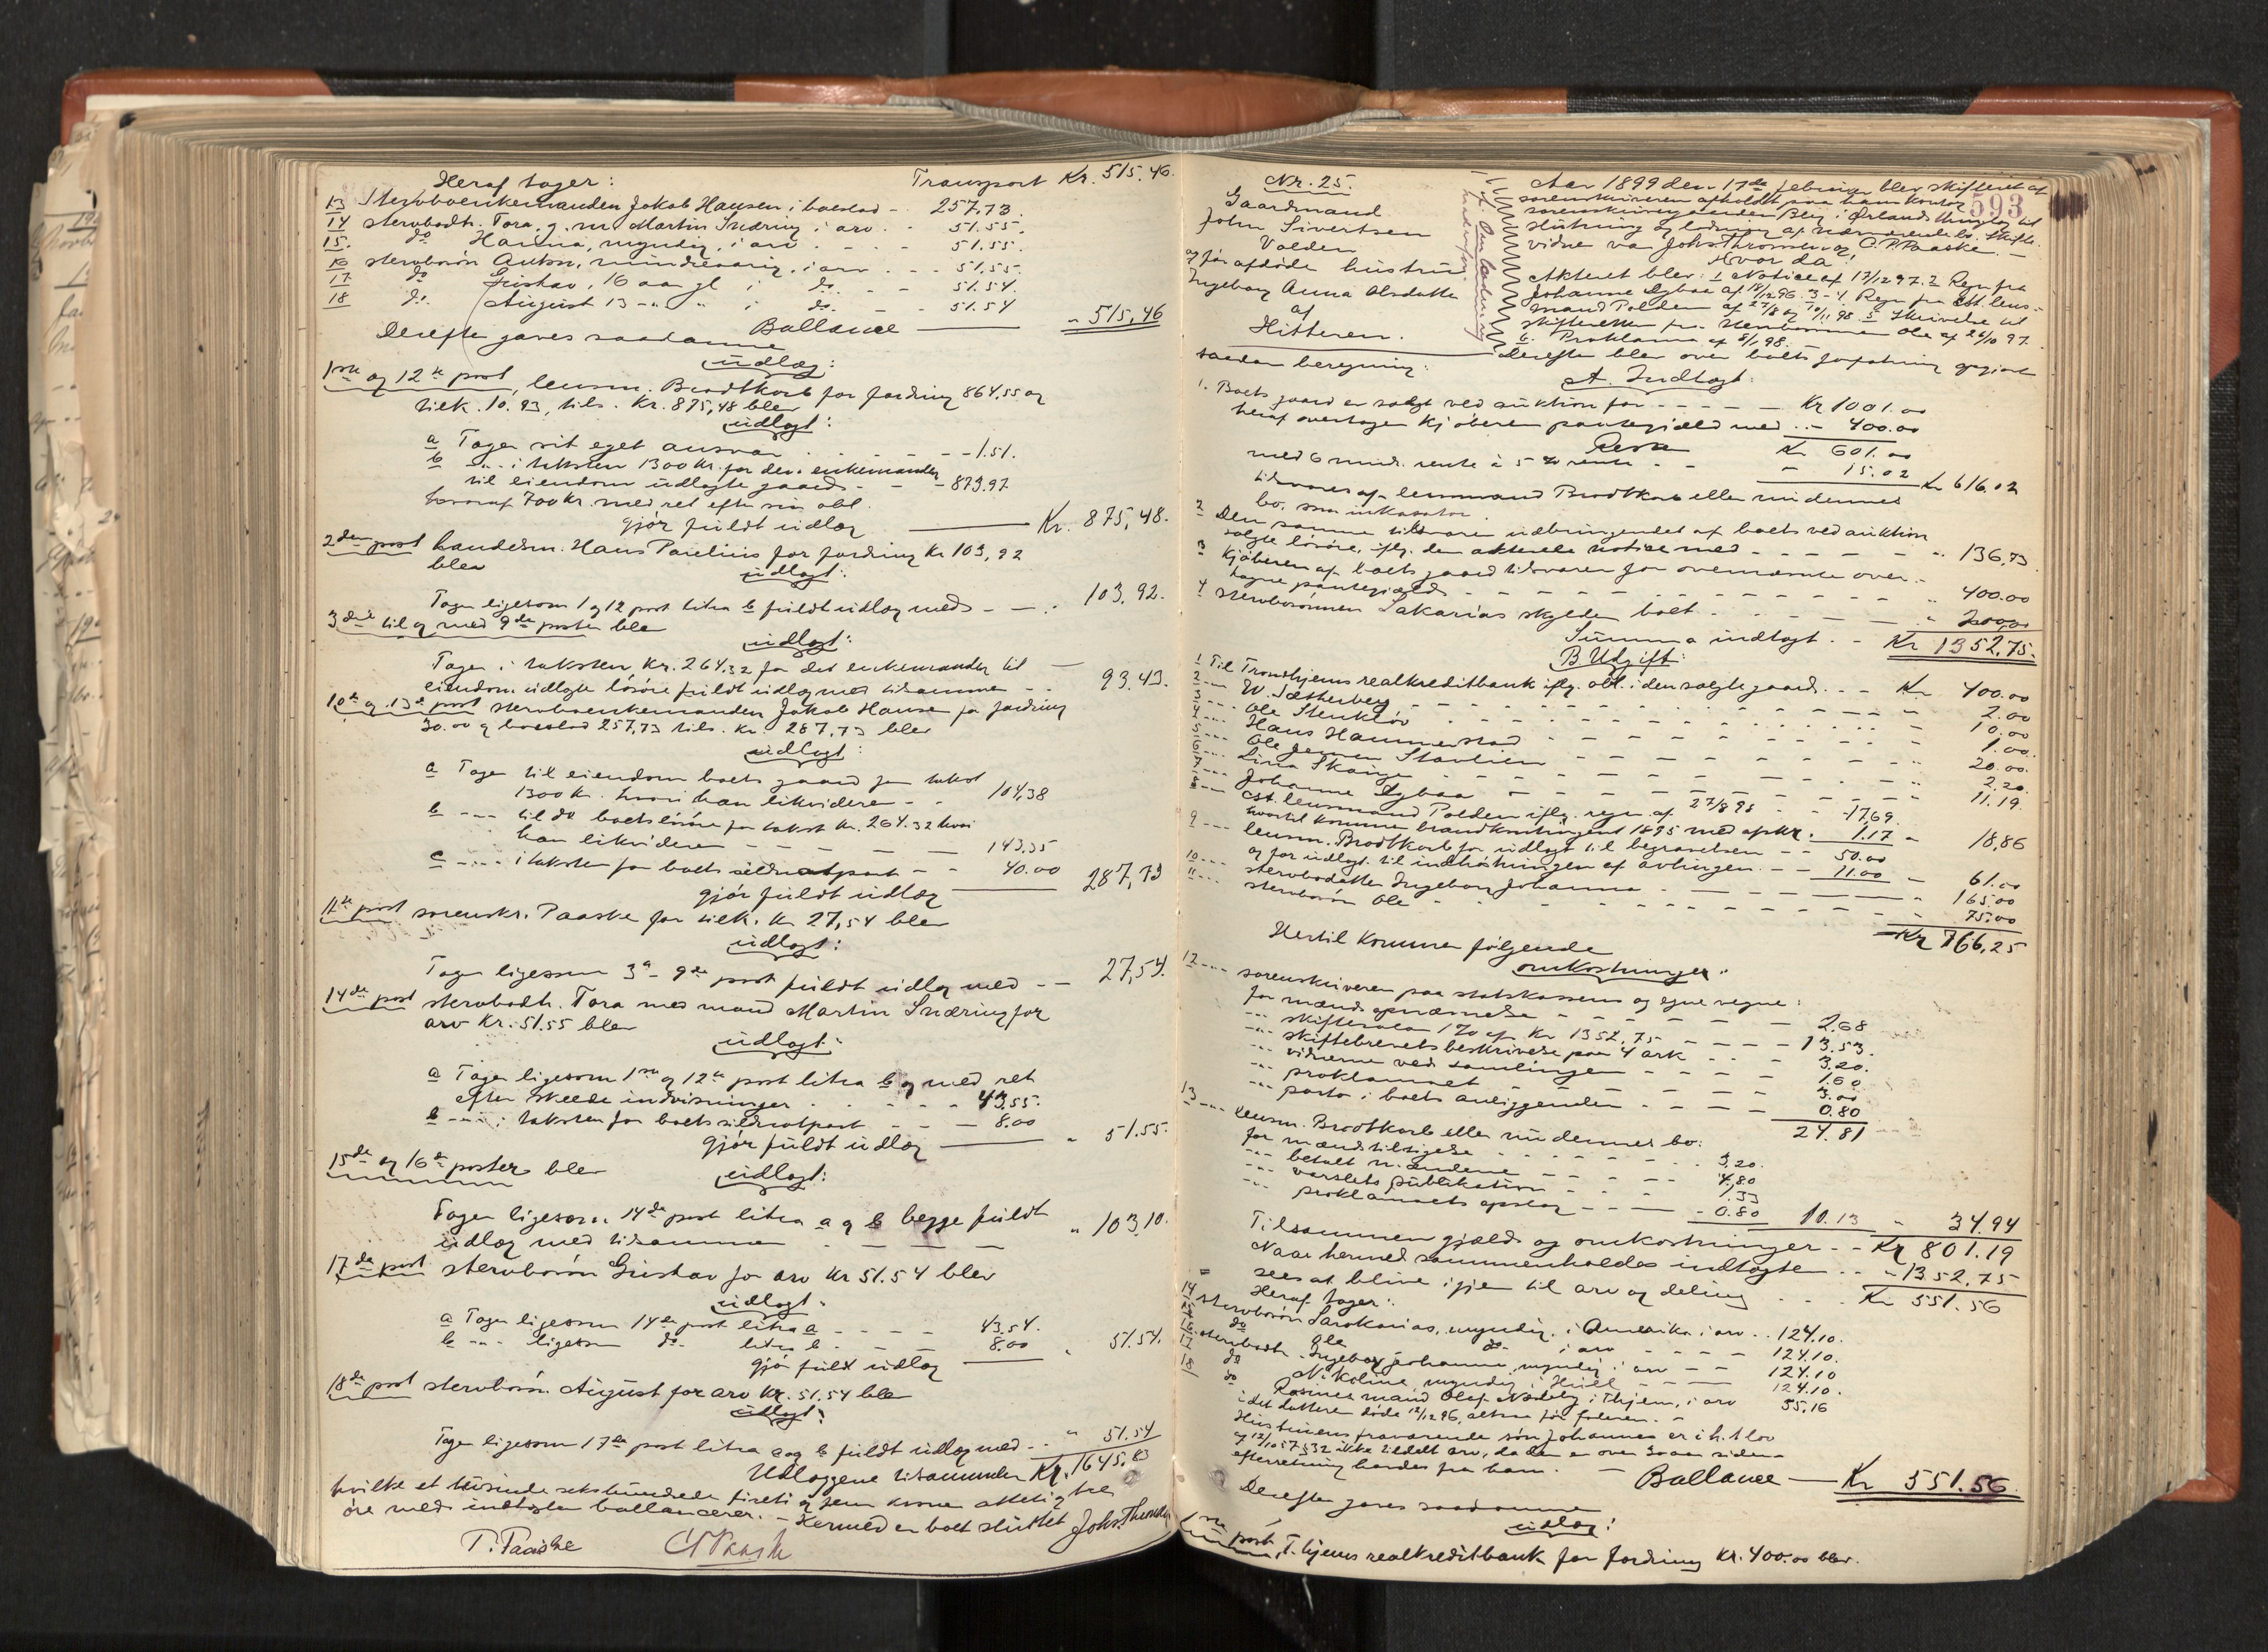 Heraf tager: Transport Kr. 515,46.
13 Stervboenkemanden Jakob Hansen i boeslod - 257,73.
14 stervbodtr. Tora, g. m. Martin Snæring i arv - 51.55.
15. do Hanna, myndig, i arv - - - 51.55.
16 stervbosön Anton, mindreaarig, i arv - - - 51.55.
17 do Gustav, 16 aar gl i do. - - 51.54.
18 do. August 13 -"- " i do. - - 51.54
Ballance - " 515,46
Derefter gaves saadanne
udlæg:
1ste og 12te post, lensm. Brodtkorb for fordring 864,55 og
tilk. 10.93, tils. Kr. 875,48 blev
udlagt:
a Tager sit eget ansvar - - 1.51.
b -"- i taksten 1300 Kr. for den enkemanden
til eiendom udlagte gaard - - - 873.97
hvoraf 700 kr. med ret efter sin obl.
gjör fuldt udlæg Kr. 875,48.
2den post handelsm. Hans Paulius for fordring Kr 103,92
blev udlagt:
Tager ligesom 1 og 12 post litra b fuldt udlæg med - - 103,92.
3die til og med 9de poster blev
udlagt:
Tager i taksten Kr. 264.32 for det enkemanden til
eiendom udlagte lösöre fuldt udlæg med tilsammen - - 93.43.
10de og 13de post stervboenkemanden Jakob Hansen for fordring
30.00 og boeslod 257,73 tils. Kr. 287,73 blev
udlagt:
a Tager til eiendom boets gaard for takst
1300 Kr. hvori han likviderer - - 104,38
b --- til do boets lösöre for takst Kr. 264.32 hvori
han likviderer - - - - 143.35
c --- i taksten for boets sildnotpart - - 40.00 287,73
gjör fuldt udlæg
11te post sorenskr. Paaske for tilk. Kr 27,54 blev
udlagt:
Tager ligesom 3die - 9de post fuldt udlæg med - - 27,54.
14de post stervbodtr. Tora med mand Martin Snæring for
arv Kr. 51.55 blev
udlagt:
a Tager ligesom 1ste og 12te post litra b og med ret
efter skeede indvisninger - - - 43.55.
b --- i taksten for boets sildnotpart - - - 8.00
gjör fuldt udlæg " 51.55.
15de og 16de poster blev udlagt:
Tager ligesom 14de post litra a og b begge fuldt
udlæg med tilsammen - - - " 103,10.
17de post stervbosön Gustav for arv Kr 51.54 blev
udlagt:
a Tager ligesom 14de post litra a - - - 43.54.
b --- ligesom do. litra b - - - 8.00 " 51.54.
gjör fuldt udlæg
18de post stervbosön August for arv Kr. 51.54 blev
udlagt:
Tager ligesom 17de post litra a og b fuldt udlæg med - - " 51.54
Udlæggene tilsammen Kr. 1645.83
hvilke et tusinde sekshundrede firti og fem kroner ottetitre
öre med indtægten ballancerer. - Hermed er boet sluttet Johs. Thronsen
P. Paaske C P Paaske
593
Nr. 25.
Gaardmand
John Sivertsen
Valden
og för afdöde hustru
Ingeborg Anna Olsdatter
af
Hitteren.
Aar 1899 den 17de februar blev skifteret af
sorenskriveren afholdt paa hans kontor
sorenskrivergaarden Berg i Ørlands thinglag til
slutning og lodning af nærværende bo. Skifte-
vidner var Johs. Thronsen og C. P. Paaske. -
Hvor da!
Akteret blev: 1 Notice af 17/12 97. 2 Regn fra
Johanne Nybaa af 18/12 96. 3-4. Regn fra Cst. lens-
mand Polden af 27/8 og 10/11 98. 5 Skrivelse til
skifteretten fra stervbosönnen Ole af 24/10 97.
6. Proklama af 8/1 98.
Derefter blev over boets forfatning opgjort
saadan beregning:
A. Indtægt:
1. Boets gaard er solgt ved auktion for - - - - Kr 1001.00
heraf overtager kjöberen pantegjæld med - - 400.00
Rester Kr 601.00
med 6 mnd. rente à 5 % rente - - " 15.02 Kr 616.02
tilsvares af lensmand Brodtkorb eller nu dennes
bo, som inkasator.
2 Den samme tilsvarer udbringendet af boets ved auktion
solgte lösöre, iflg. den akterede notice med - - - - " 136,73
3 Kjöberen af boets gaard tilsvarer for ovennævnte over-
tagne pantegjæld - - - - - " 400.00
4 stervbosönnen Sakarias skylder boet - - - " 200,00
Summa indtægt - Kr 1352,75.
B Udgift:
1 Til Tronhjems realkreditbank iflg. obl. i den solgte gaard - - Kr 400.00
2 --- W. Sætherberg - - - - 2.00
3 --- Ole Stenklöv - - - - 10.00
4 --- Hans Hammerstad - - - - 1.00.
5 --- Ole Jensen Stavlien - - - - 20.00.
6 --- Lina Skange - - - - 2.20.
7 --- Johanne Nybaa - - - - 11.19.
8 --- Cst. lensmand Polden iflg. regn. af 27/8 98 - 17,69.
hvortil kommer brandkontingent 1895 med afkr. 1.17 - 18,86
9 --- lensm. Brodtkorb for udlagt til begravelsen - - 50.00
og for udlagt til indhöstningen af avlingen - - 11.00 - 61.00
10 --- stervbodatter Ingeborg Johanna - - - 165.00
11 --- stervbosön Ole - - - 75.00
Kr 766,25
Hertil kommer fölgende
omkostninger:
12 --- sorenskriveren paa statskassens og egne vegne:
for mænds opnævnelse - - - - 2.68
--- skiftesalær 1 % af Kr 1352,75 - - - - 13.53.
--- skiftebrevets beskrivelse paa 4 ark - - - 3.20.
--- vidnerne ved samlingen - - - 1.60
--- proklamaet - - - 3.00
--- porto i boets anliggender - - - 0.80
24.81
13 --- lensm. Brodtkorb eller nu dennes bo:
for mænds tilsigelse - - - 3,20.
--- betalt m. ændene - - - 4,80
--- varslets publikation - - - 1.33
--- proklamaets opslag - - - 0.80 10.13 " 34.94
Tilsammen gjæld og omkostninger - - Kr 801.19
Naar hermed sammenholdes indtægten - - - 1352,75
sees at blive igjen til arv og deling - - - Kr 551.56
Heraf tager:
14 stervbosön Sakarias, myndig, i Amerika i arv - - 124.10.
15 do Ole do. i arv - - - 124.10.
16 stervbodtr. Ingeborg Johanna, myndig i arv - - 124.10
17 do Nikoline, myndig i Hiell - - - 124.10.
18 do Rosines mand Olaf i Thjem, i arv 55,16
idet datteren döde 12/12 96, altsaa för faderen. -
Hustruens fraværende sön Johannes er i h. t lov
af 12/10 57 § 32 ikke tildelt arv, da der er over 30 aar siden
efterretning havdes fra ham. - Ballance - Kr 551.56
Derefter gaves saadanne
udlæg:
1ste post, T.hjems realkreditbank for fordring Kr. 400.00 blev.